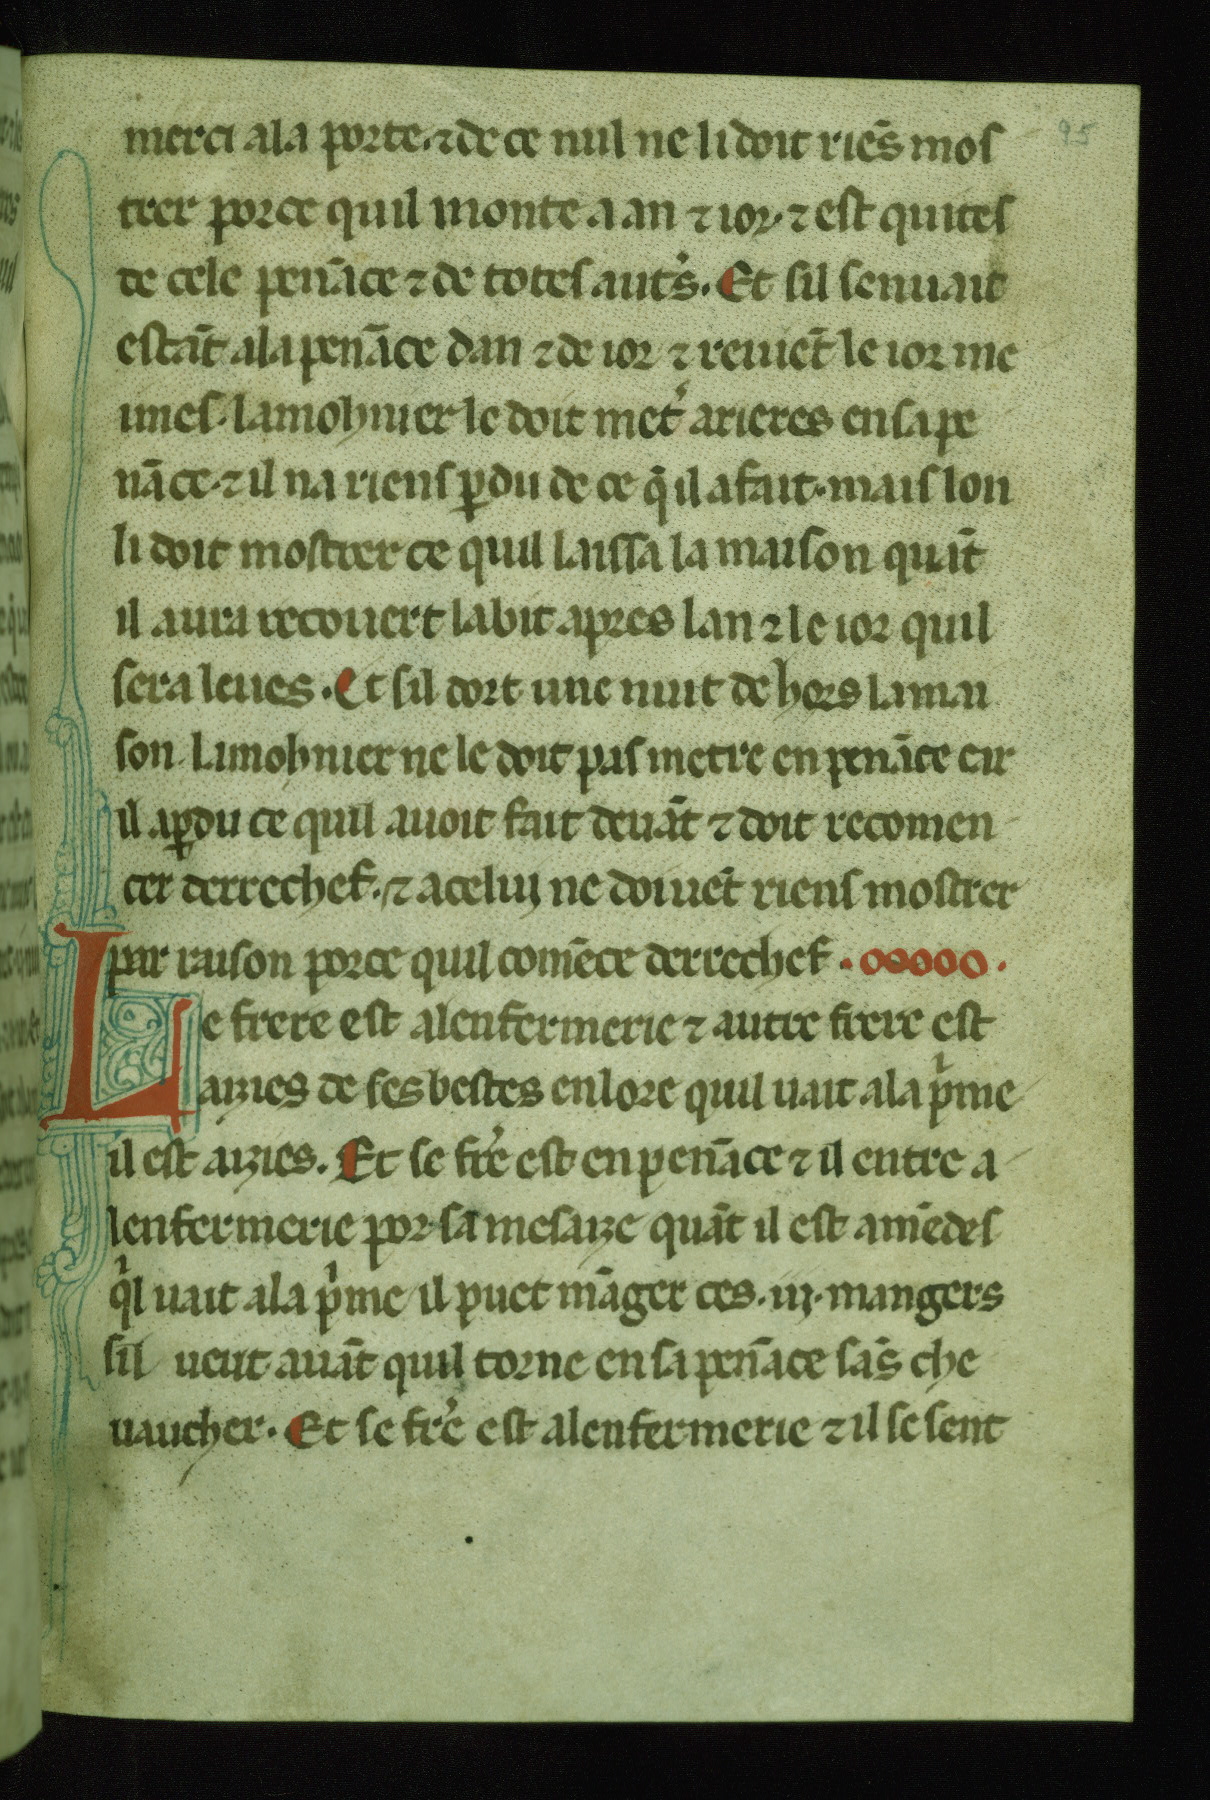 95
merci ala porte ⁊ de ce nul ne li doit riēs mos
trer porce quil monte a an ⁊ ior. ⁊ est quites
de cele penāce ⁊ de totes autˀs. Et sil senuait
estāt ala penāce dan ⁊ de ior ⁊ reuiēt le ior me
imes. lamohnier le doit metˀ arieres en sa pe
nāce. ⁊ il na riens ꝑdu de ce q̄ il a fait. mais lon
li doit mostrer ce quil laissa la maison quāt
il aura recouert labit apres lan ⁊ le ior quil
sera leues. Et sil dort une nuit de hors la mai
son. Limohnier ne le doit pas metre en penāce car
il a ꝑdu ce quil auoit fait deuāt ⁊ doit recomen
cer derrechef. ⁊ a celuy ne doiuēt riens mostrer
par raison porce quil comēce derrechef.
Le frere est alenfermerie ⁊ autre frere est
aizies de ses bestes enlore quil uait ala pͥme
il est aizies. Et se frˀe est en penāce ⁊ il entre a
lenfermerie por sa mesaize quāt il est amēdes
qͥl uait ala pͥme il puet māger ces .iij. mangers
sil ueut auāt quil torne en sa penāce sās che
uaucher. Et se frˀe est alenfermerie ⁊ il se sent